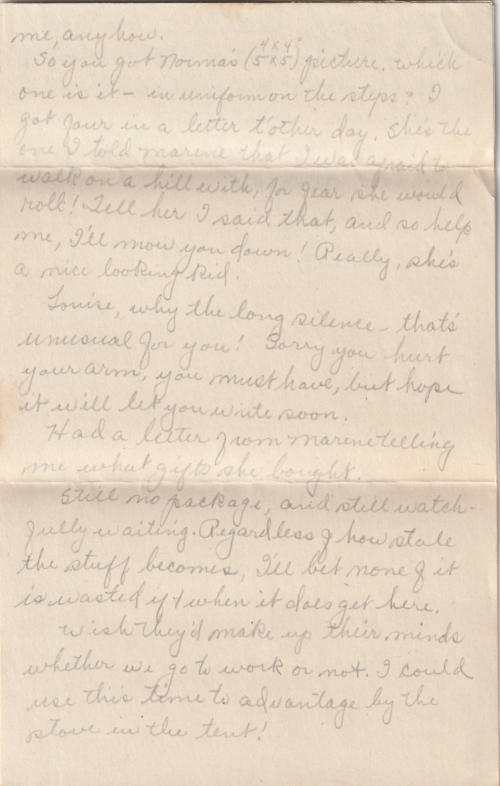 me, anyhow.
So you got Norma's (5x5) picture. which
4x4?
one is it – in uniform on the steps? I
got four in a letter t'other day. She's the
one I told Marene that I was afraid to
walk on a hill with, for fear she would
roll! Tell her I said that, and so help
me, I'll mow you down! Really, she's
a nice looking kid.
Louise, why the long silence – that's
unusual for you! Sorry you hurt
your arm, you must have, but hope
it will let you write soon.
Had a letter from Marene telling
me what gifts she bought.
Still no package, and still watch-
fully waiting. Regardless of how stale
the stuff becomes, I'll bet none of it
is wasted if & when it does get here.
Wish they'd make up their minds
whether we go to work or not. I could
use this time to advantage by the
stove in the tent!